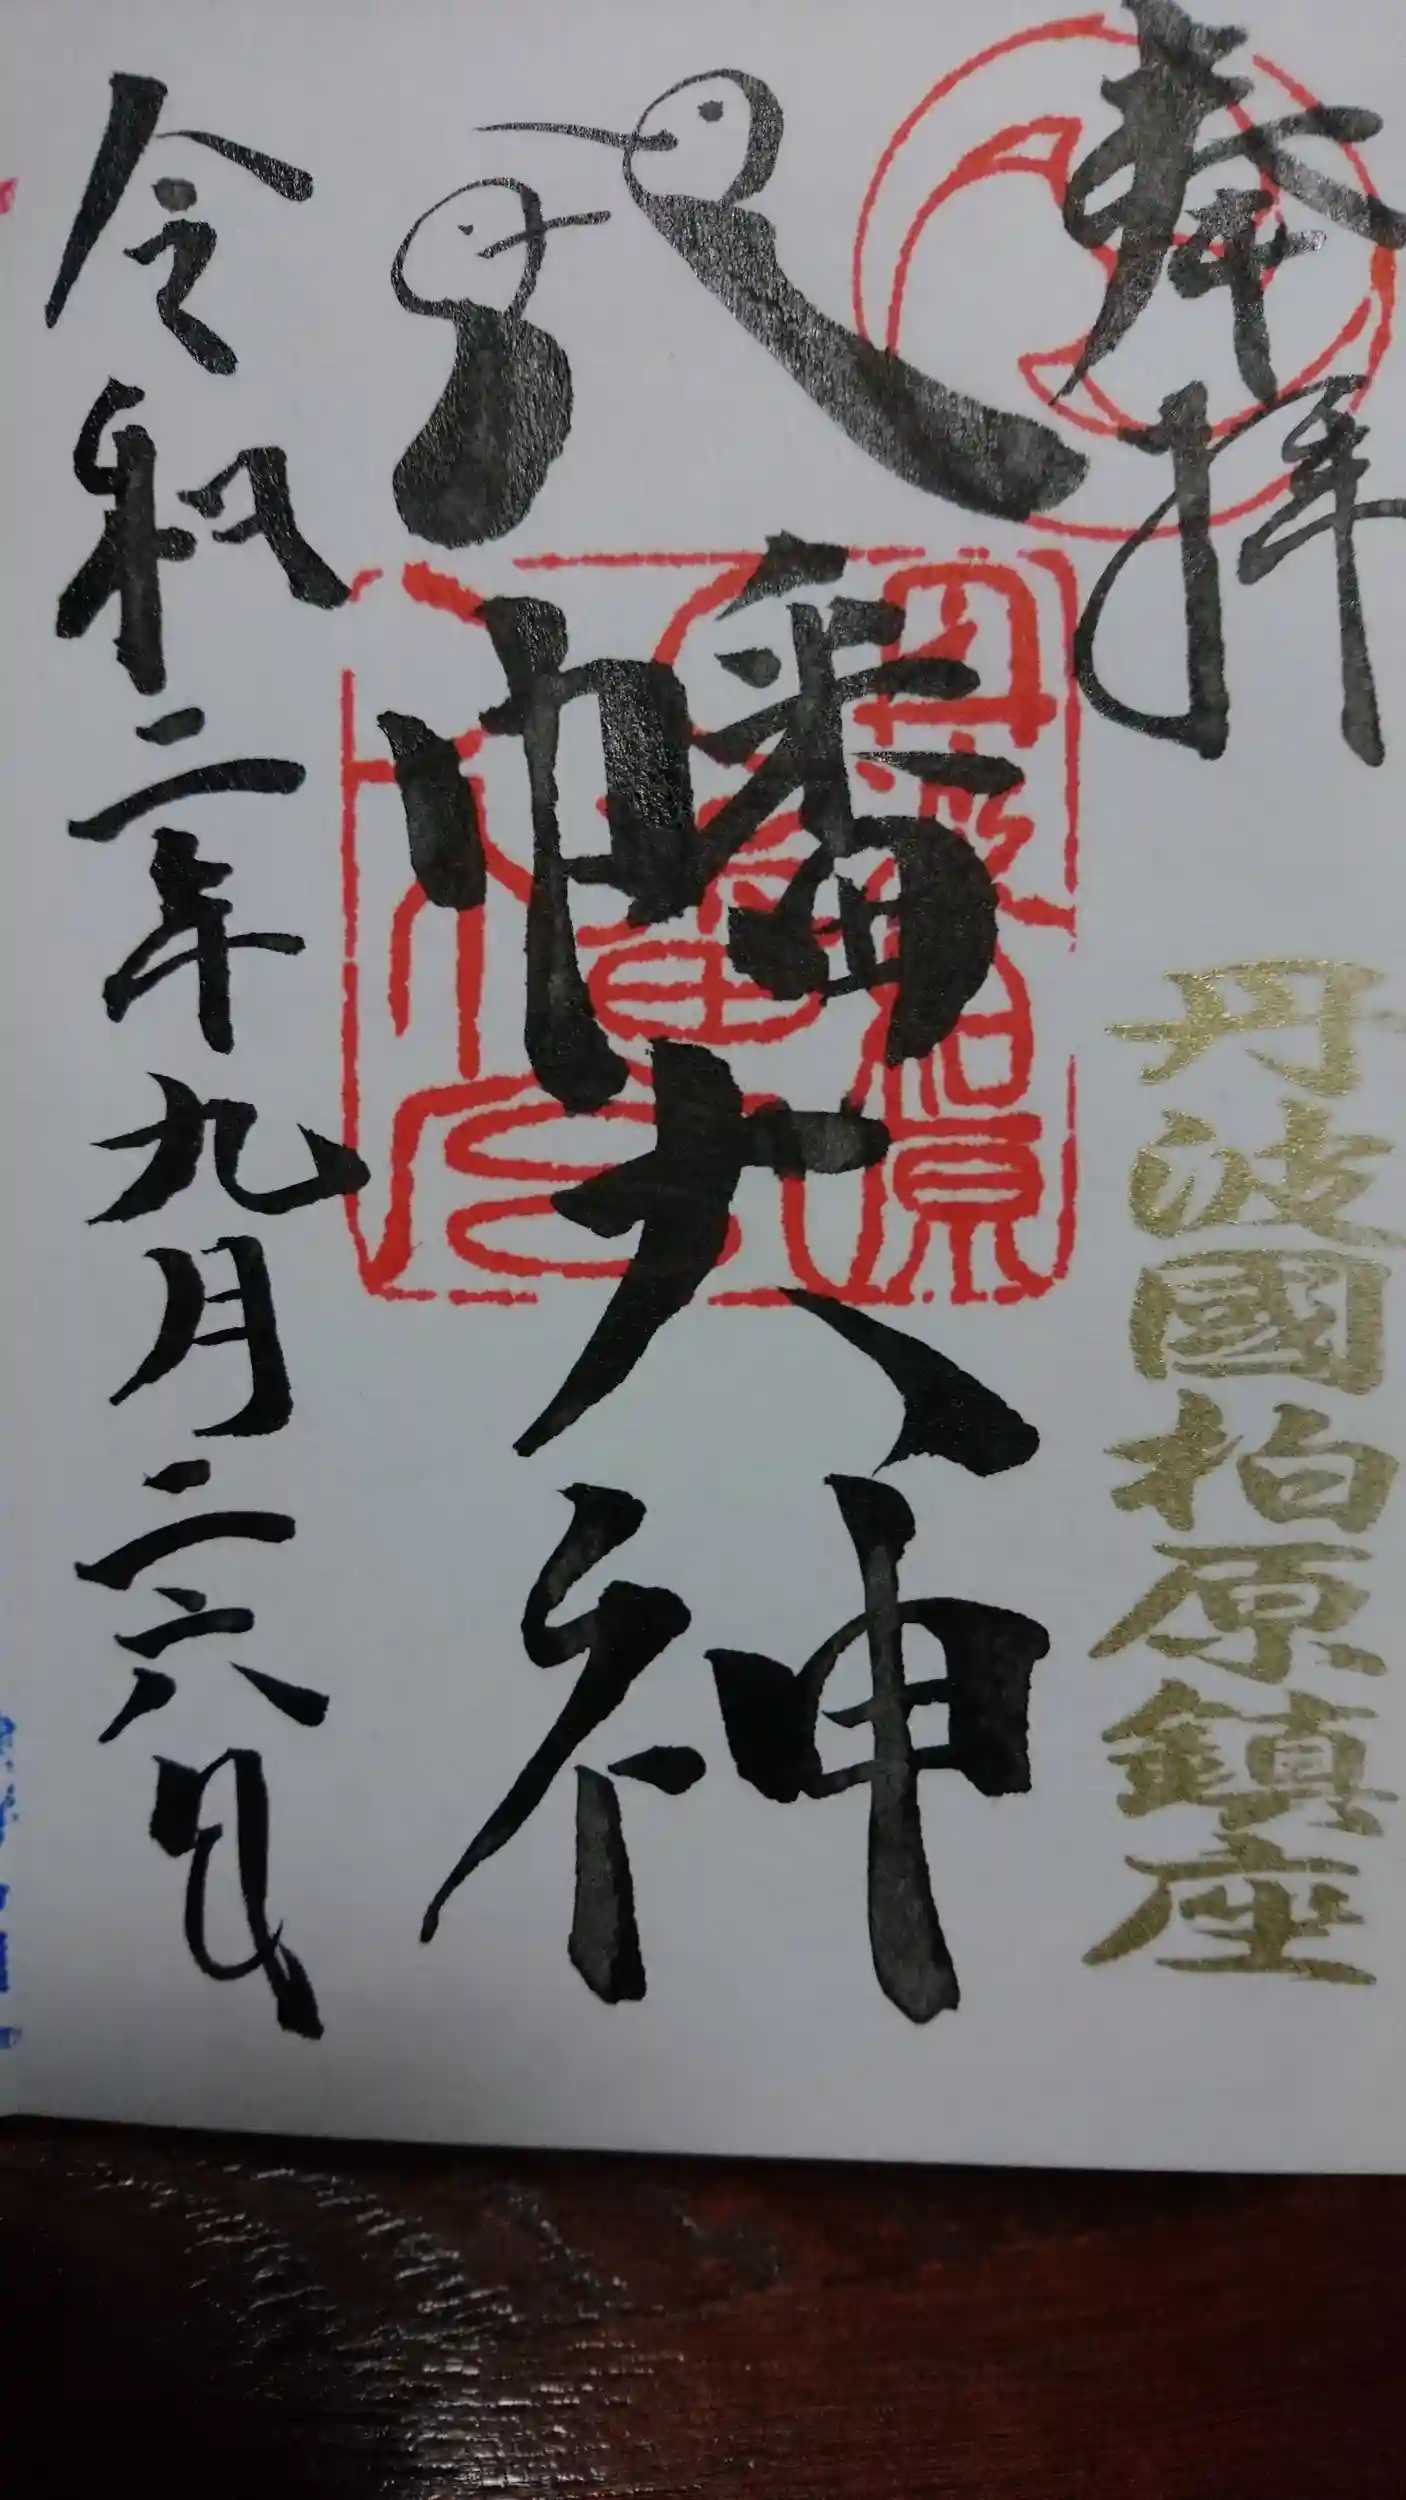 奉拝
丹波國柏原鎮座
八幡大神
丹波柏原
八幡宮印
令和二年九月二六日